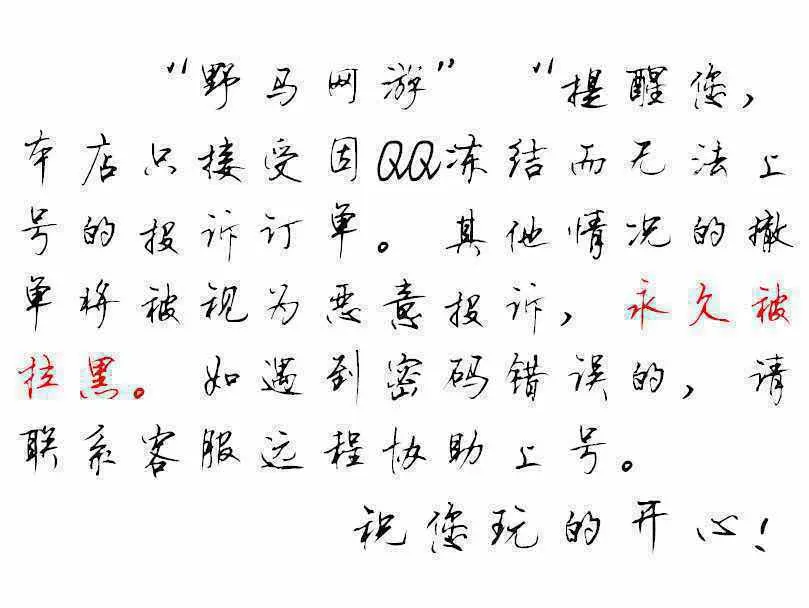 “野马网游” “提醒您，
本店只接受因QQ冻结而无法上
号的投诉订单。其他情况的撤
单将被视为恶意投诉，永久被
拉黑。如遇到密码错误的，请
联系客服远程协助上号。
祝您玩的开心！